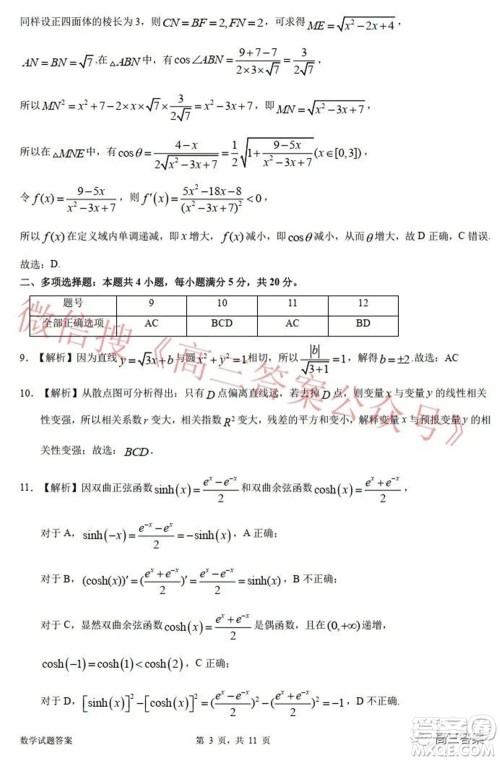 同样设正四面体的棱长为 3，则 CN = BF = 2, FN = 2，可求得 ME = √(x²−2x+4)，
AN = BN = √7. 在△ABN 中，有 cos∠ABN = (9+7−7)/(2×3×√7) = 3/(2√7)，
所以 MN² = x² + 7 − 2×x×√7 × 3/(2√7)，即 MN = √(x²−3x+7)，
所以在△MNE 中，有 cosθ = (4−x)/(2√(x²−3x+7)) = (1/2)√(1+(9−5x)/(x²−3x+7)) (x∈[0,3])
令 f(x) = (9−5x)/(x²−3x+7)，则 f′(x) = (5x²−18x−8)/(x²−3x+7)² < 0，
所以 f(x) 在定义域内单调递减，即 x 增大，f(x) 减小，即 cosθ 减小，从而 θ 增大，故 D 正确，C 错误.
故选：D.
二、多项选择题：本题共 4 小题，每小题满分 5 分，共 20 分。
题号 9 10 11 12
全部正确选项 AC BCD AC BD
9．【解析】因为直线 y = √3x + b 与圆 x² + y² = 1 相切，所以 |b|/√(3+1) = 1，解得 b = ±2. 故选：AC
10．【解析】从散点图可分析得出：只有 D 点偏离直线远，若去掉 D 点，则变量 x 与变量 y 的线性相关
性变强，所以相关系数变大，相关指数 R² 变大，残差的平方和变小，解释变量 x 与预报变量 y 的相
关性变强；故选： BCD．
11．【解析】因双曲正弦函数 sinh(x) = (eˣ−e⁻ˣ)/2 和双曲余弦函数 cosh(x) = (eˣ+e⁻ˣ)/2，
对于 A，sinh(−x) = (e⁻ˣ−eˣ)/2 = −sinh(x)，A 正确；
对于 B，(cosh(x))′ = ((eˣ+e⁻ˣ)/2)′ = (eˣ−e⁻ˣ)/2 = sinh(x)，B 不正确；
对于 C，显然双曲余弦函数 cosh(x) = (eˣ+e⁻ˣ)/2 是偶函数，且在 (0,+∞) 递增，
cosh(−1) = cosh(1) < cosh(2)，C 正确；
对于 D，[sinh(x)]² − [cosh(x)]² = ((eˣ−e⁻ˣ)/2)² − ((eˣ+e⁻ˣ)/2)² = −1，D 不正确.
数学试题答案 第 3 页，共 11 页
微信搜《高三答案公众号》
高三答案